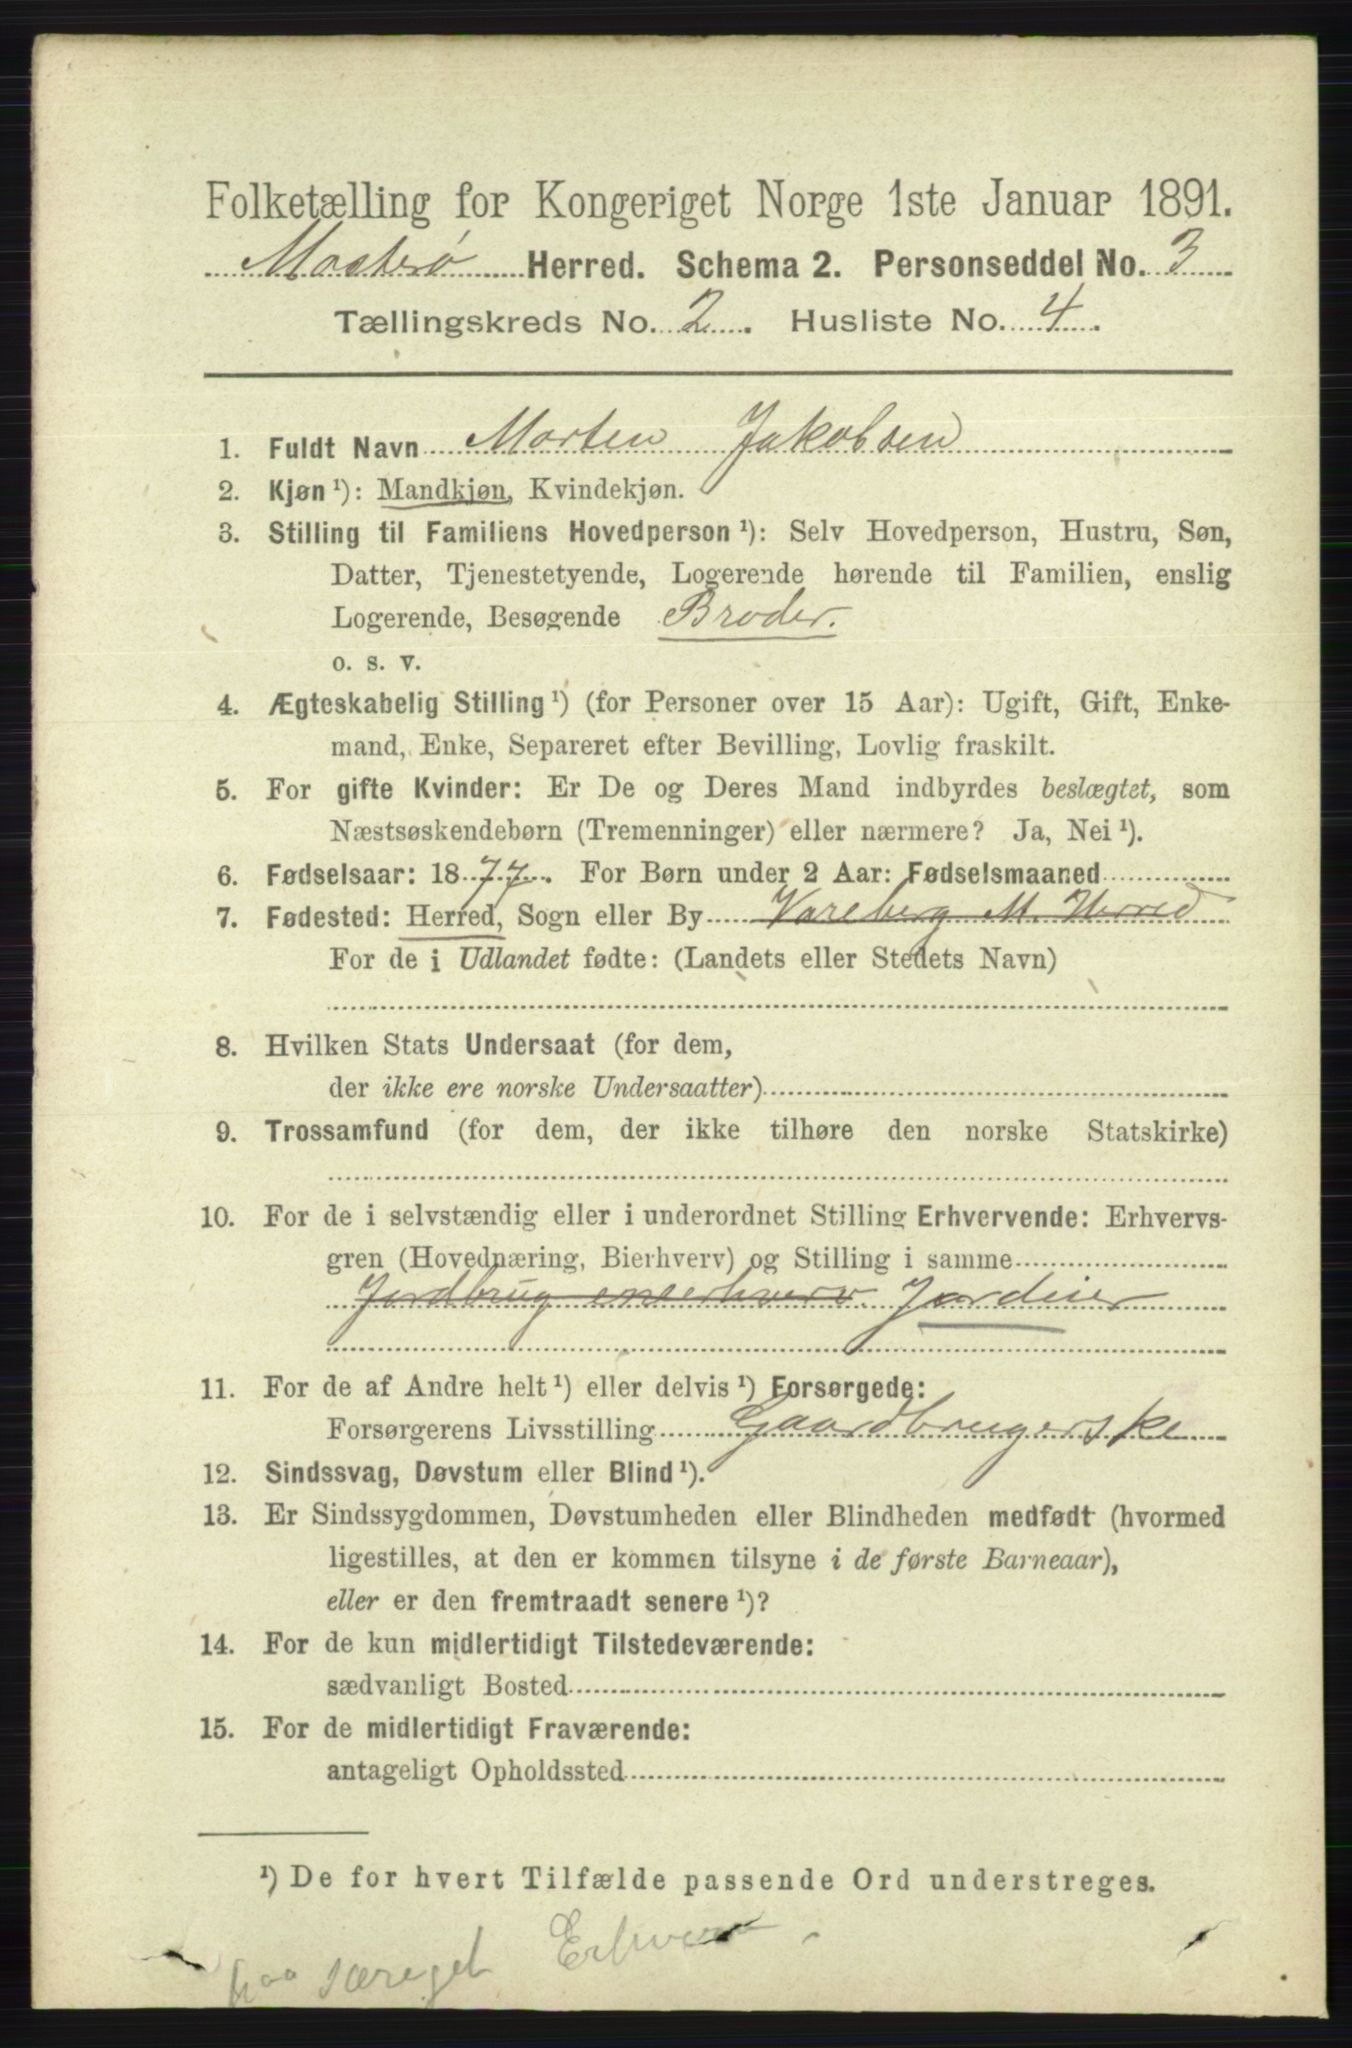 Folketælling for Kongeriget Norge 1ste Januar 1891.
Mosterø Herred. Schema 2. Personseddel No. 3
Tællingskreds No. 2. Husliste No. 4.
1. Fuldt Navn Morten Jakobsen
2. Kjøn ¹): Mandkjøn, Kvindekjøn.
3. Stilling til Familiens Hovedperson ¹): Selv Hovedperson, Hustru, Søn,
Datter, Tjenestetyende, Logerende hørende til Familien, enslig
Logerende, Besøgende Broder.
o. s. v.
4. Ægteskabelig Stilling ¹) (for Personer over 15 Aar): Ugift, Gift, Enke-
mand, Enke, Separeret efter Bevilling, Lovlig fraskilt.
5. For gifte Kvinder: Er De og Deres Mand indbyrdes beslægtet, som
Næstsøskendebørn (Tremenninger) eller nærmere? Ja, Nei ¹).
6. Fødselsaar: 1877. For Børn under 2 Aar: Fødselsmaaned
7. Fødested: Herred, Sogn eller By Vareberg M. Herred
For de i Udlandet fødte: (Landets eller Stedets Navn)
8. Hvilken Stats Undersaat (for dem,
der ikke ere norske Undersaatter)
9. Trossamfund (for dem, der ikke tilhøre den norske Statskirke)
10. For de i selvstændig eller i underordnet Stilling Erhvervende: Erhvervs-
gren (Hovednæring, Bierhverv) og Stilling i samme
Jordbrug Jordeier
11. For de af Andre helt ¹) eller delvis ¹) Forsørgede:
Forsørgerens Livsstilling Gaardbrugerske
12. Sindssvag, Døvstum eller Blind ¹).
13. Er Sindssygdommen, Døvstumheden eller Blindheden medfødt (hvormed
ligestilles, at den er kommen tilsyne i de første Barneaar),
eller er den fremtraadt senere ¹)?
14. For de kun midlertidigt Tilstedeværende:
sædvanligt Bosted
15. For de midlertidigt Fraværende:
antageligt Opholdssted
¹) De for hvert Tilfælde passende Ord understreges.
særeget Erhverv